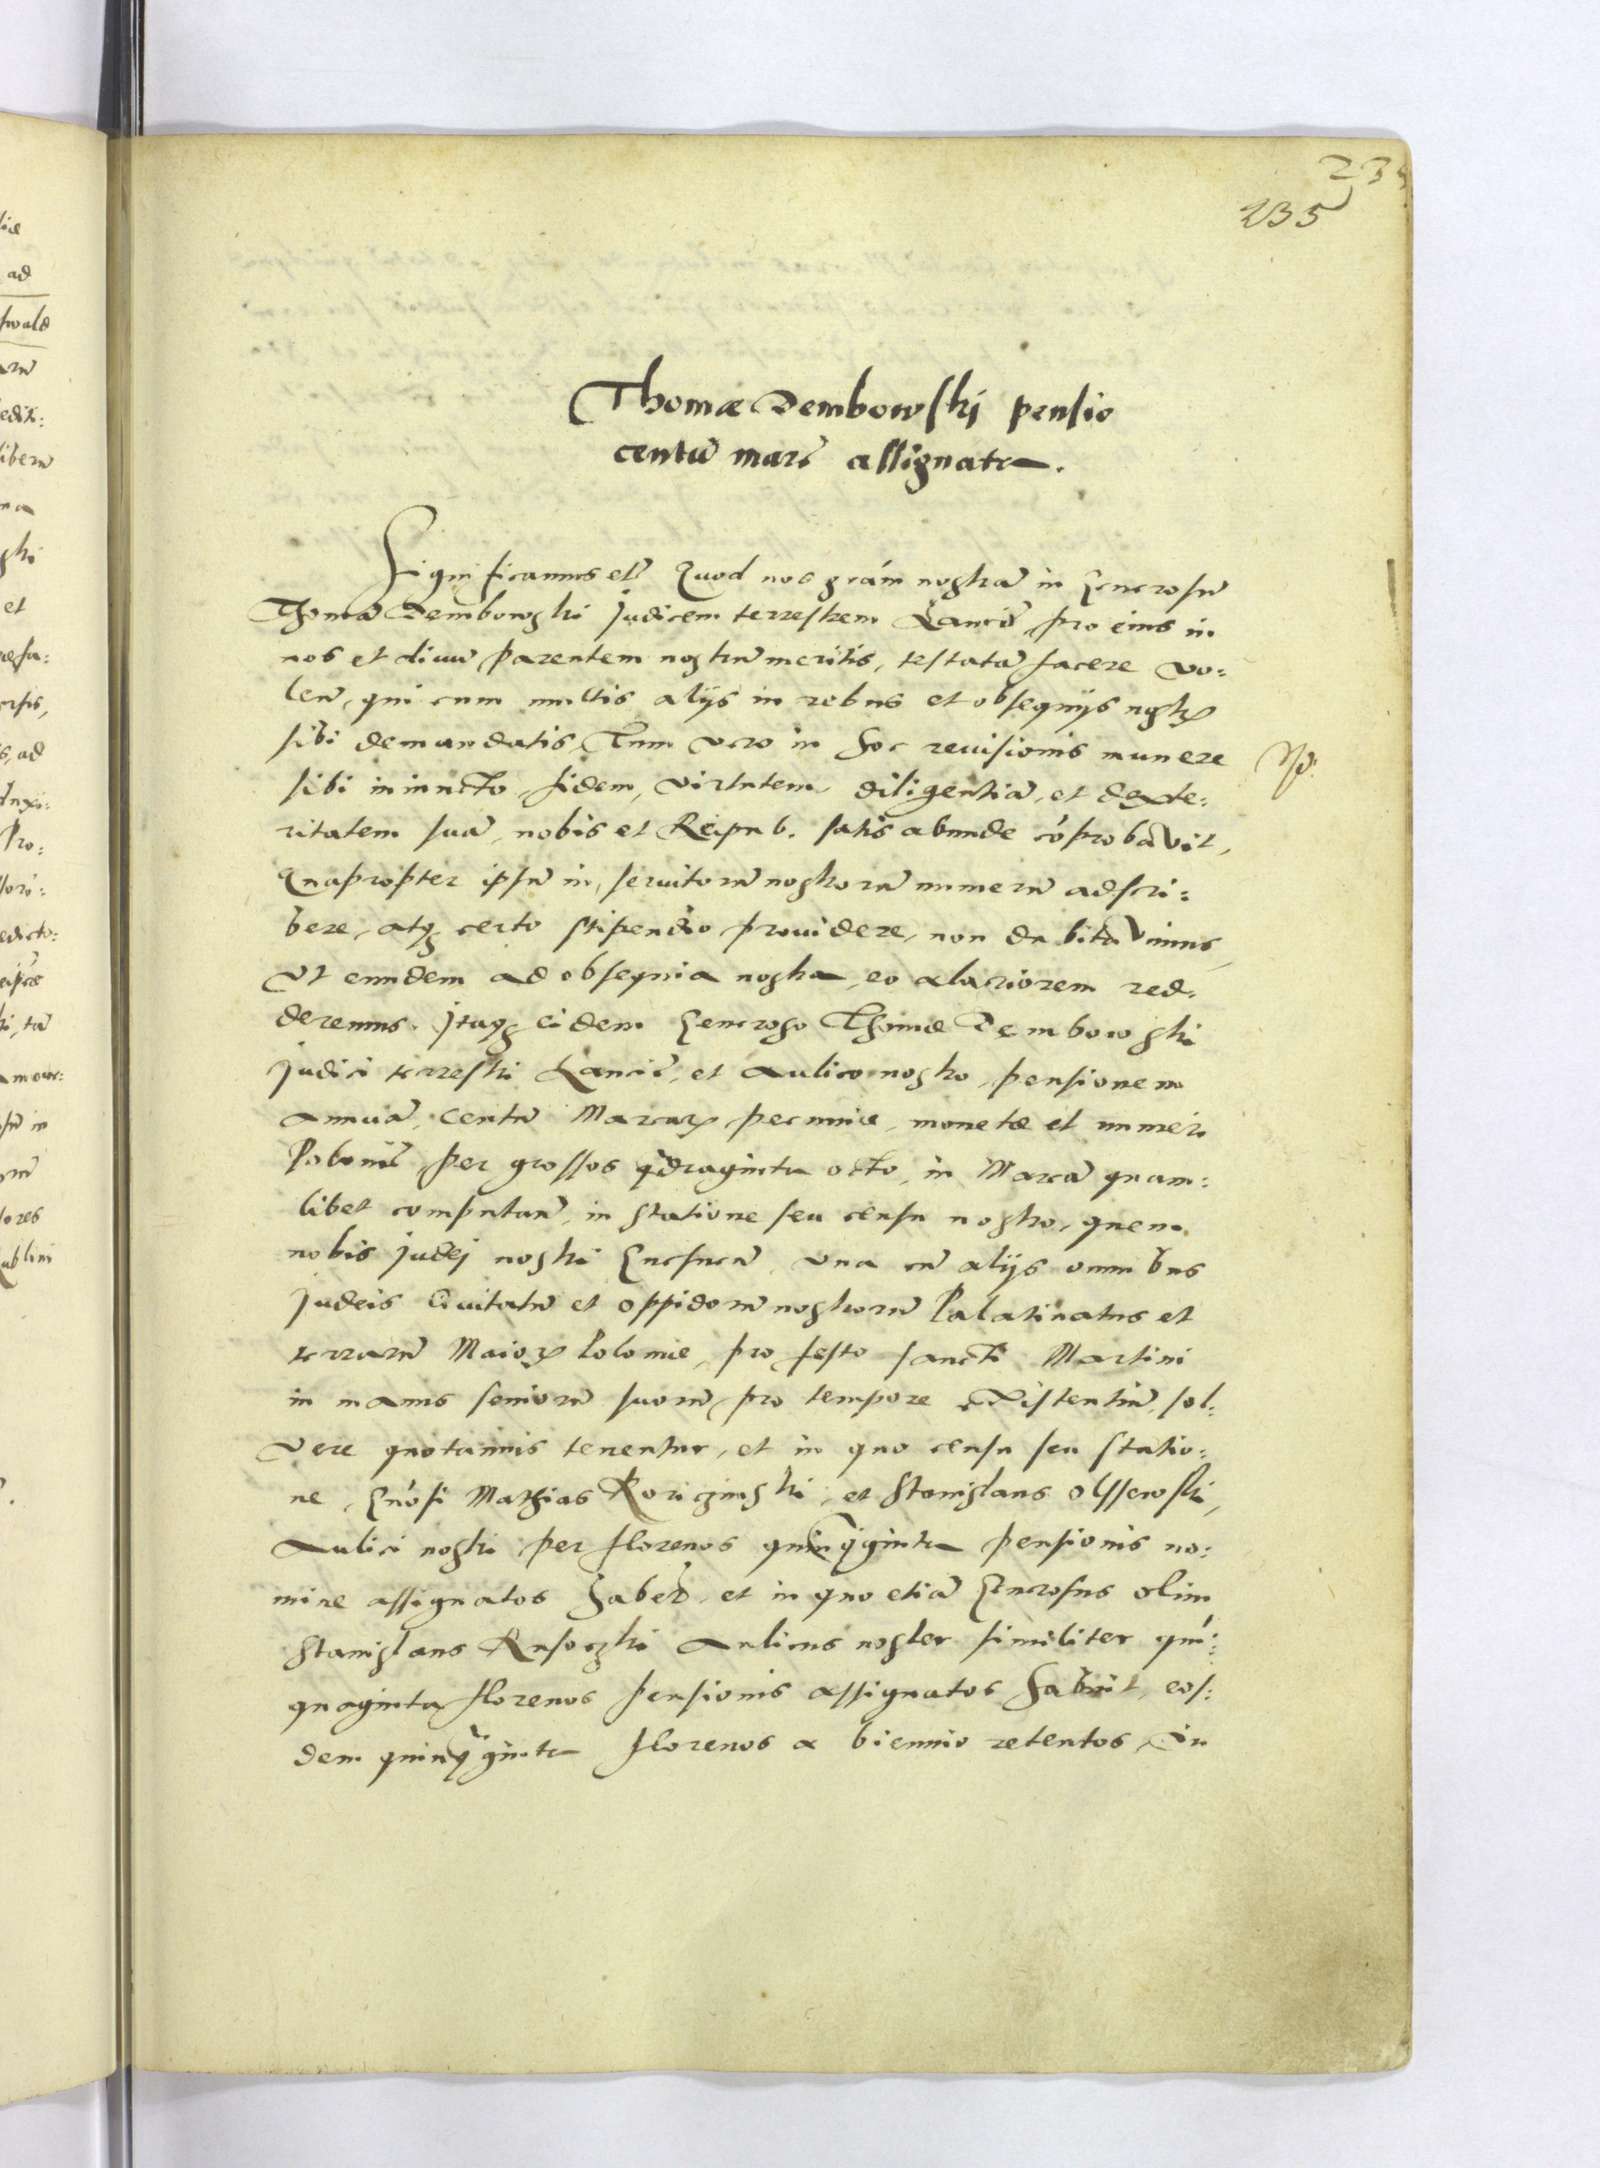 235
235
Thomæ Dembowskj pensio
centū marc̄ assignata.
Significamus etc̄ Quod nos grám nostrā in Generosū
Thomā Dembowski Judicem terrestrem Lancic̄, pro eius in
nos et divū parentem nostrū meritis, testatā facere vo:
len̄, qui cum multis alijs in rebus et obsequijs nostrꝝ
sibi demandatis, Tum vero in hoc reuisionis munere
sibi iniuncto, fidem, virtutem diligentiā, et dexte:
ritatem suā, nobis et Reipub. satis abunde cōprobavit,
Quapropter ipsū in, seruitorū nostrorū numerū adscri:
bere, atqꝫ certo stipendio prouidere, non dubitavimus,
Ut eundem ad obsequia nostra, eo alacriorem red:
deremus. Itaqꝫ eidem Generoso Thomæ Dembowski
Judici terrestri Lancic̄, et Aulico nostro, pensionem
Annuā, Centū Marcarꝝ pecuniæ, monetæ et numeri
Polonic̄ per grossos qͣdraginta octo, in Marcā quam:
libet computan̄, in statione seu censu nostro, quem
nobis Judęj nostri Gnesnen̄, una cū alijs omnibus
Judeis Ciuitatū et oppidorū nostrorū Palatinatus et
terrarū Maiorꝝ Polonie, pro festo sancti Martini
in manus seniorū suorū pro tempore existentiū, sol:
vere quotannis tenentur, et in quo censu seu statio:
ne, Gnósi Mathias Koriczinski, et Stanislaus Olssewski,
Aulici nostri per florenos quinqͣginta pensionis no:
mine assignatos habet, et in quo etiā Generosus olim
Stanislaus Rusoczki Aulicus noster similiter quī:
quaginta florenos pensionis assignatos habuit, eos:
dem quinqͣginta florenos a biennio retentos, in